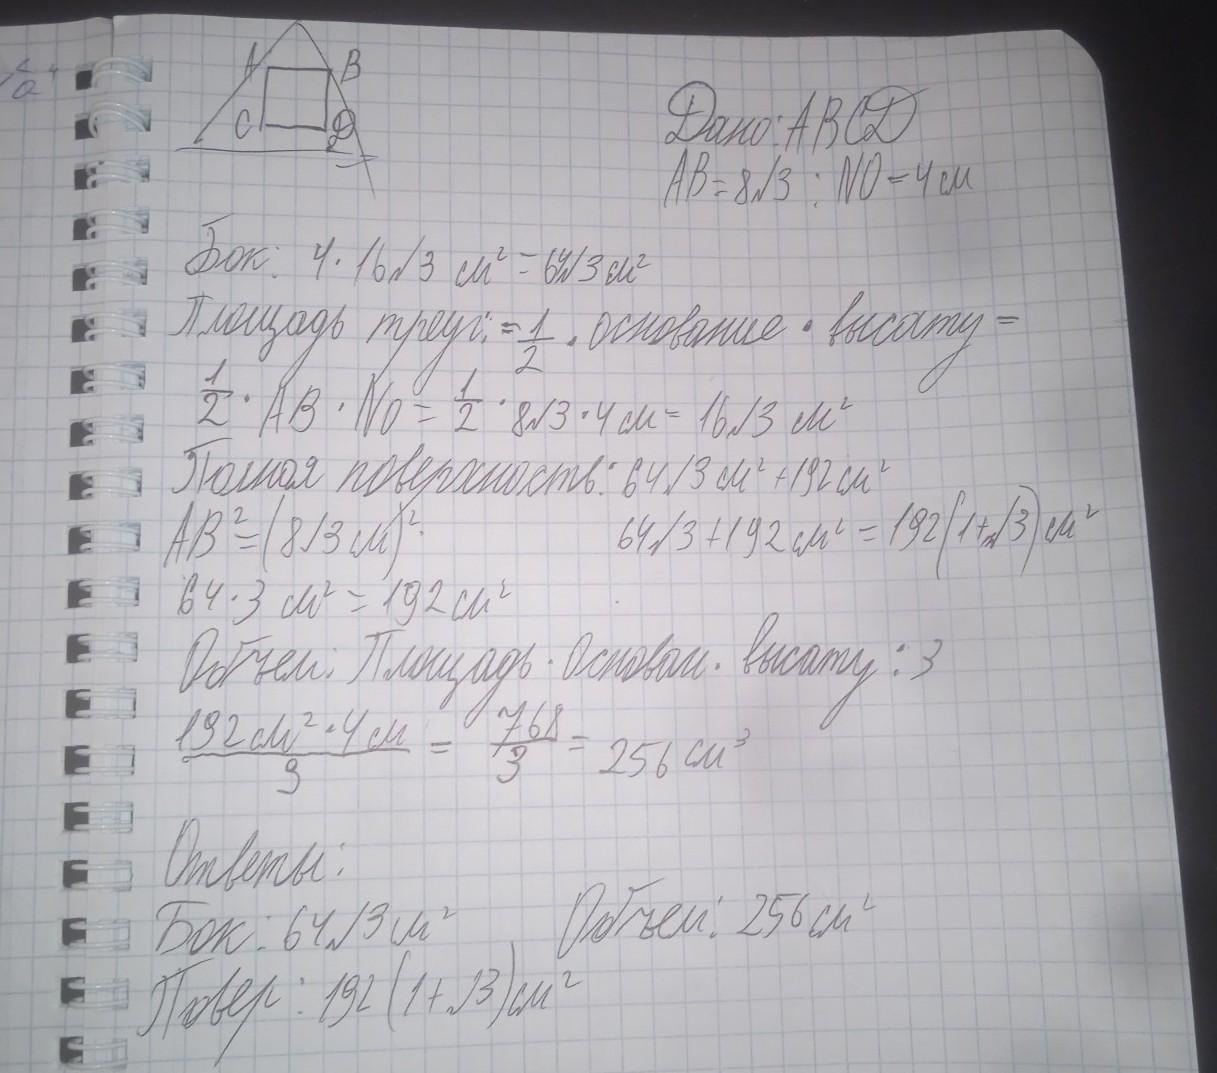 A B
C D
Дано: ABCD
AB = 8√3 : NO = 4 см
Бок: 4 · 16√3 см² = 64√3 см²
Площадь треуг: = 1/2 · основание · высату =
1/2 · AB · NO = 1/2 · 8√3 · 4 см = 16√3 см²
Полная поверхность: 64√3 см² + 192 см²
AB² = (8√3 см)² 64√3 + 192 см² = 192(1+√3) см²
64 · 3 см² = 192 см²
Объем: Площадь · Основан · высату : 3
192 см² · 4 см / 3 = 768/3 = 256 см³
Ответы:
Бок: 64√3 см² Объем: 256 см²
Повер: 192(1+√3) см²